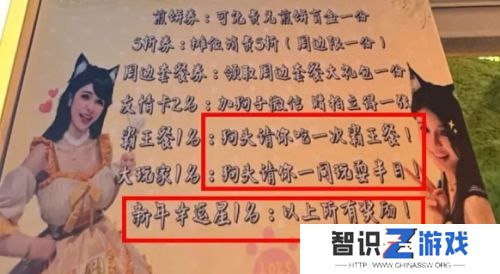 煎饼券:可免费兑煎饼盲盒一份
5折券:摊位消费5折(周边限一份)
周边套餐券:领取周边套餐大礼包一份
友情卡2名:加狗子微信 随拍立得一张
霸王餐1名:狗头请你吃一次霸王餐!
大玩家1名:狗头请你一同玩耍半日!
新年幸运星1名:以上所有奖励!
智识Z游戏
WWW.CHINASSW.COM